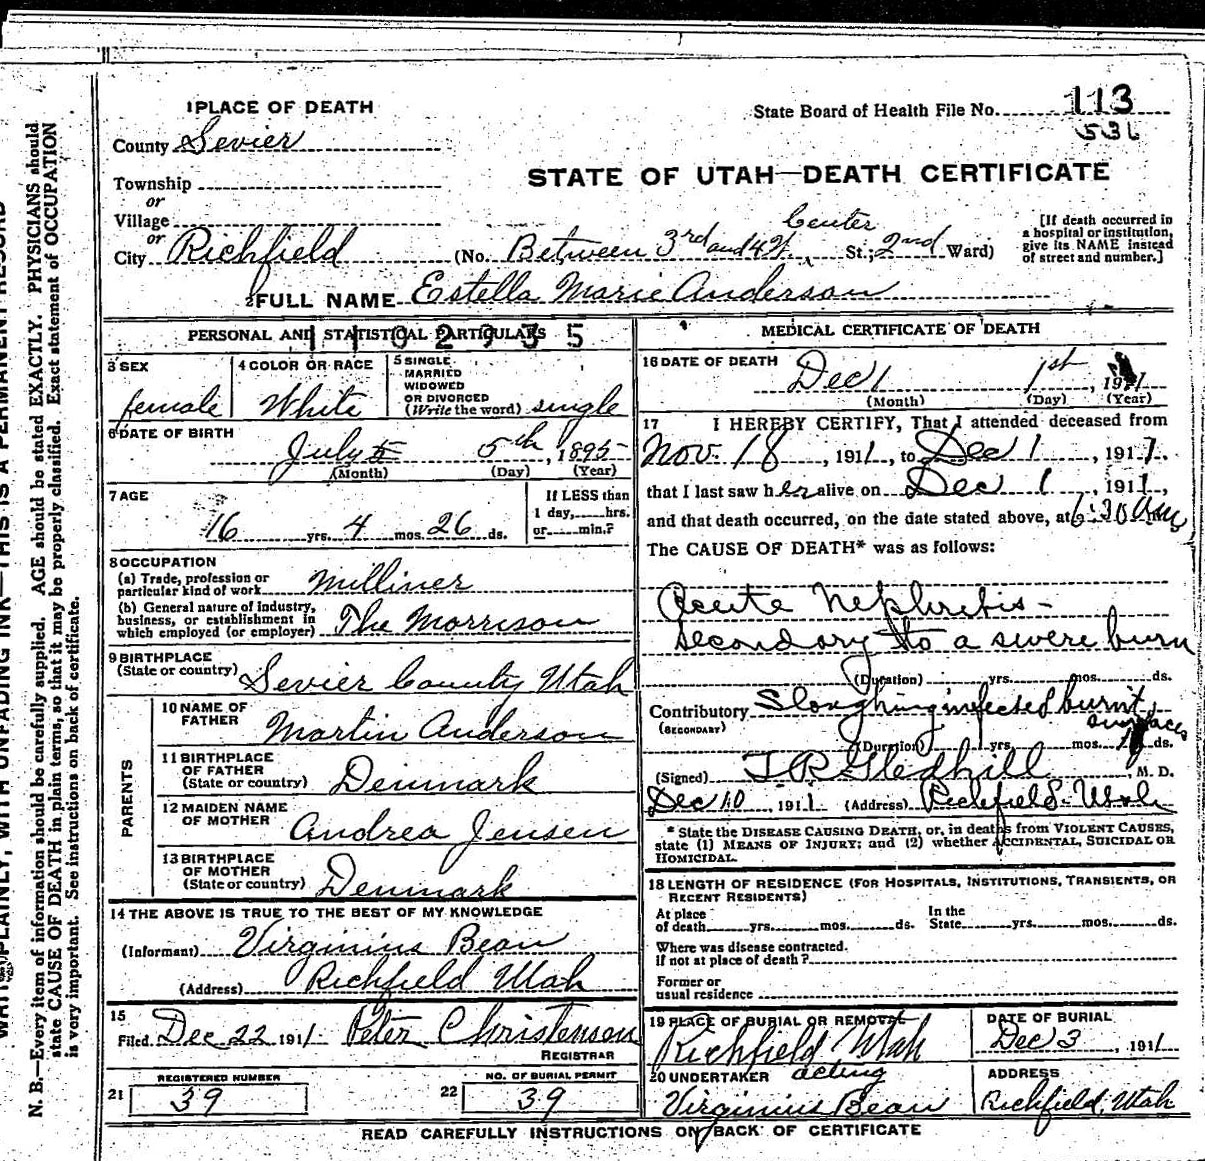 1 PLACE OF DEATH
State Board of Health File No. 113
County Sevier
536
Township
STATE OF UTAH—DEATH CERTIFICATE
or
Village
or
City Richfield (No. Between 3rd and 4th Center St.; 2nd Ward)
[If death occurred in
a hospital or institution,
give its NAME instead
of street and number.]
2 FULL NAME Estella Marie Anderson
PERSONAL AND STATISTICAL PARTICULARS
1102935
3 SEX
female
4 COLOR OR RACE
White
5 SINGLE
MARRIED
WIDOWED
OR DIVORCED
(Write the word) single
6 DATE OF BIRTH
July 5th, 1895
(Month) (Day) (Year)
7 AGE
16 yrs. 4 mos. 26 ds.
If LESS than
1 day,....hrs.
or....min.?
8 OCCUPATION
(a) Trade, profession or
particular kind of work Milliner
(b) General nature of industry,
business, or establishment in
which employed (or employer) The Morrison
9 BIRTHPLACE
(State or country) Sevier County Utah
PARENTS
10 NAME OF
FATHER
Martin Anderson
11 BIRTHPLACE
OF FATHER
(State or country) Denmark
12 MAIDEN NAME
OF MOTHER
Andrea Jensen
13 BIRTHPLACE
OF MOTHER
(State or country) Denmark
14 THE ABOVE IS TRUE TO THE BEST OF MY KNOWLEDGE
(Informant) Virginius Bean
(Address) Richfield Utah
15
Filed Dec 22 1911 Peter Christenson
REGISTRAR
REGISTERED NUMBER
21 39
NO. OF BURIAL PERMIT
22 39
MEDICAL CERTIFICATE OF DEATH
16 DATE OF DEATH
Dec 1st, 1911
(Month) (Day) (Year)
17 I HEREBY CERTIFY, That I attended deceased from
Nov. 18, 1911, to Dec 1, 1911,
that I last saw her alive on Dec 1, 1911,
and that death occurred, on the date stated above, at 6:30 am
The CAUSE OF DEATH* was as follows:
Acute Nephritis -
secondary to a severe burn
(Duration) yrs. mos. ds.
Contributory Sloughing infected burnt
(SECONDARY) surfaces
(Duration) yrs. mos. ds.
(Signed) T R Gledhill, M. D.
Dec 10, 1911 (Address) Richfield - Utah
* State the DISEASE CAUSING DEATH, or, in deaths from VIOLENT CAUSES,
state (1) MEANS OF INJURY; and (2) whether ACCIDENTAL, SUICIDAL OR
HOMICIDAL.
18 LENGTH OF RESIDENCE (FOR HOSPITALS, INSTITUTIONS, TRANSIENTS, OR
RECENT RESIDENTS)
At place
of death yrs. mos. ds.
In the
State yrs. mos. ds.
Where was disease contracted.
if not at place of death?
Former or
usual residence
19 PLACE OF BURIAL OR REMOVAL
Richfield Utah
DATE OF BURIAL
Dec 3, 1911
20 UNDERTAKER acting
Virginius Bean
ADDRESS
Richfield, Utah
READ CAREFULLY INSTRUCTIONS ON BACK OF CERTIFICATE
PLAINLY, WITH UNFADING INK—THIS IS A PERMANENT RECORD
N. B.—Every item of information should be carefully supplied. AGE should be stated EXACTLY. PHYSICIANS should
state CAUSE OF DEATH in plain terms, so that it may be properly classified. Exact statement of OCCUPATION
is very important. See instructions on back of certificate.